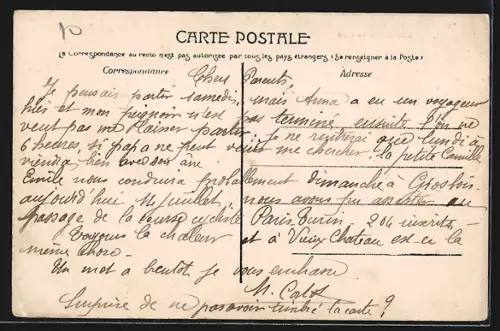 CARTE POSTALE
La Correspondance au recto n'est pas autorisée par tous les pays étrangers (Se renseigner à la Poste)
Correspondance
Adresse
Chers Parents
Je pensais partir samedi, mais Anna a eu un voyageur
hier et mon peignoir n'est pas terminé ensuite l'on ne
veut pas me laisser partir. Je ne rentrerai que lundi à
6 heures, si papa ne peut venir me chercher, la petite Camille
viendra bien avec son âne
Emile nous conduira probablement dimanche à Grosbois,
aujourd'hui 14 juillet, nous avons pu assister au
passage de la course cycliste Paris Turin 204 inscrits
Voyages la chaleur et à Vieux Chateau est-ce la
même chose
Un mot a bientôt je vous embrasse
M.
Surprise de ne pas avoir timbré la carte ?